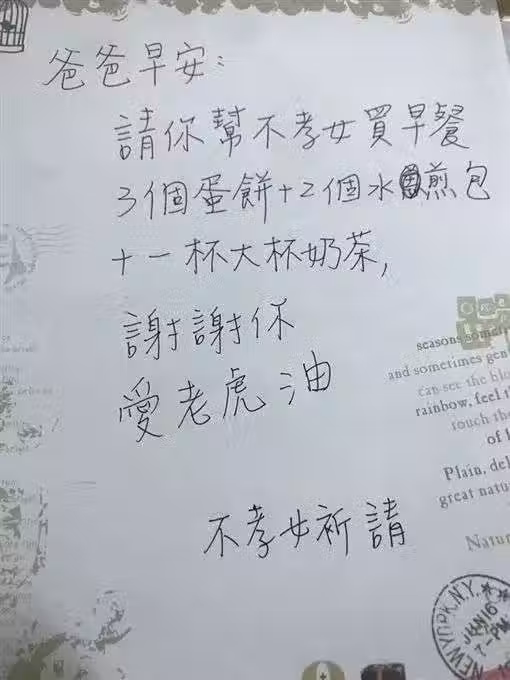 爸爸早安：
請你幫不孝女買早餐
3個蛋餅+2個水煎包
+一杯大杯奶茶,
謝謝你
愛老虎油
不孝女祈請
seasons
and sometimes gen
can see the blo
rainbow, feel t
touch the
of l
Plain, del
great natu
Natur
NEW YORK, N.Y.
JUN 16
7-PM